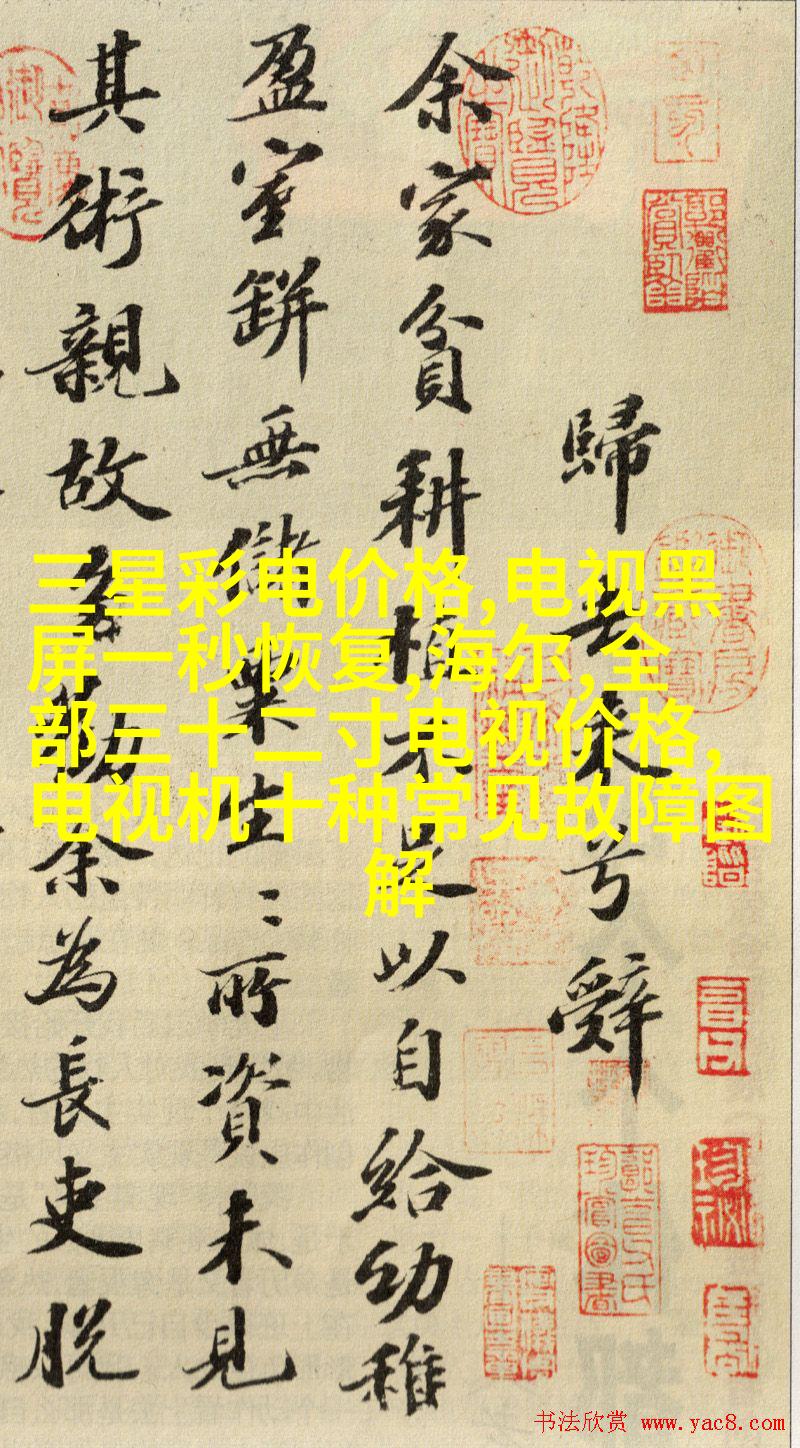 歸去来兮辭
余家貧耕植不足以自給幼稚
盈室缾無儲粟生〻所資未見
其術親故多勸余為長吏脱
三星彩电价格,电视黑
屏一秒恢复,海尔,全
部三十二寸电视价格,
电视机十种常见故障图
解
乾隆御覽之寶
书法欣赏 www.yac8.com